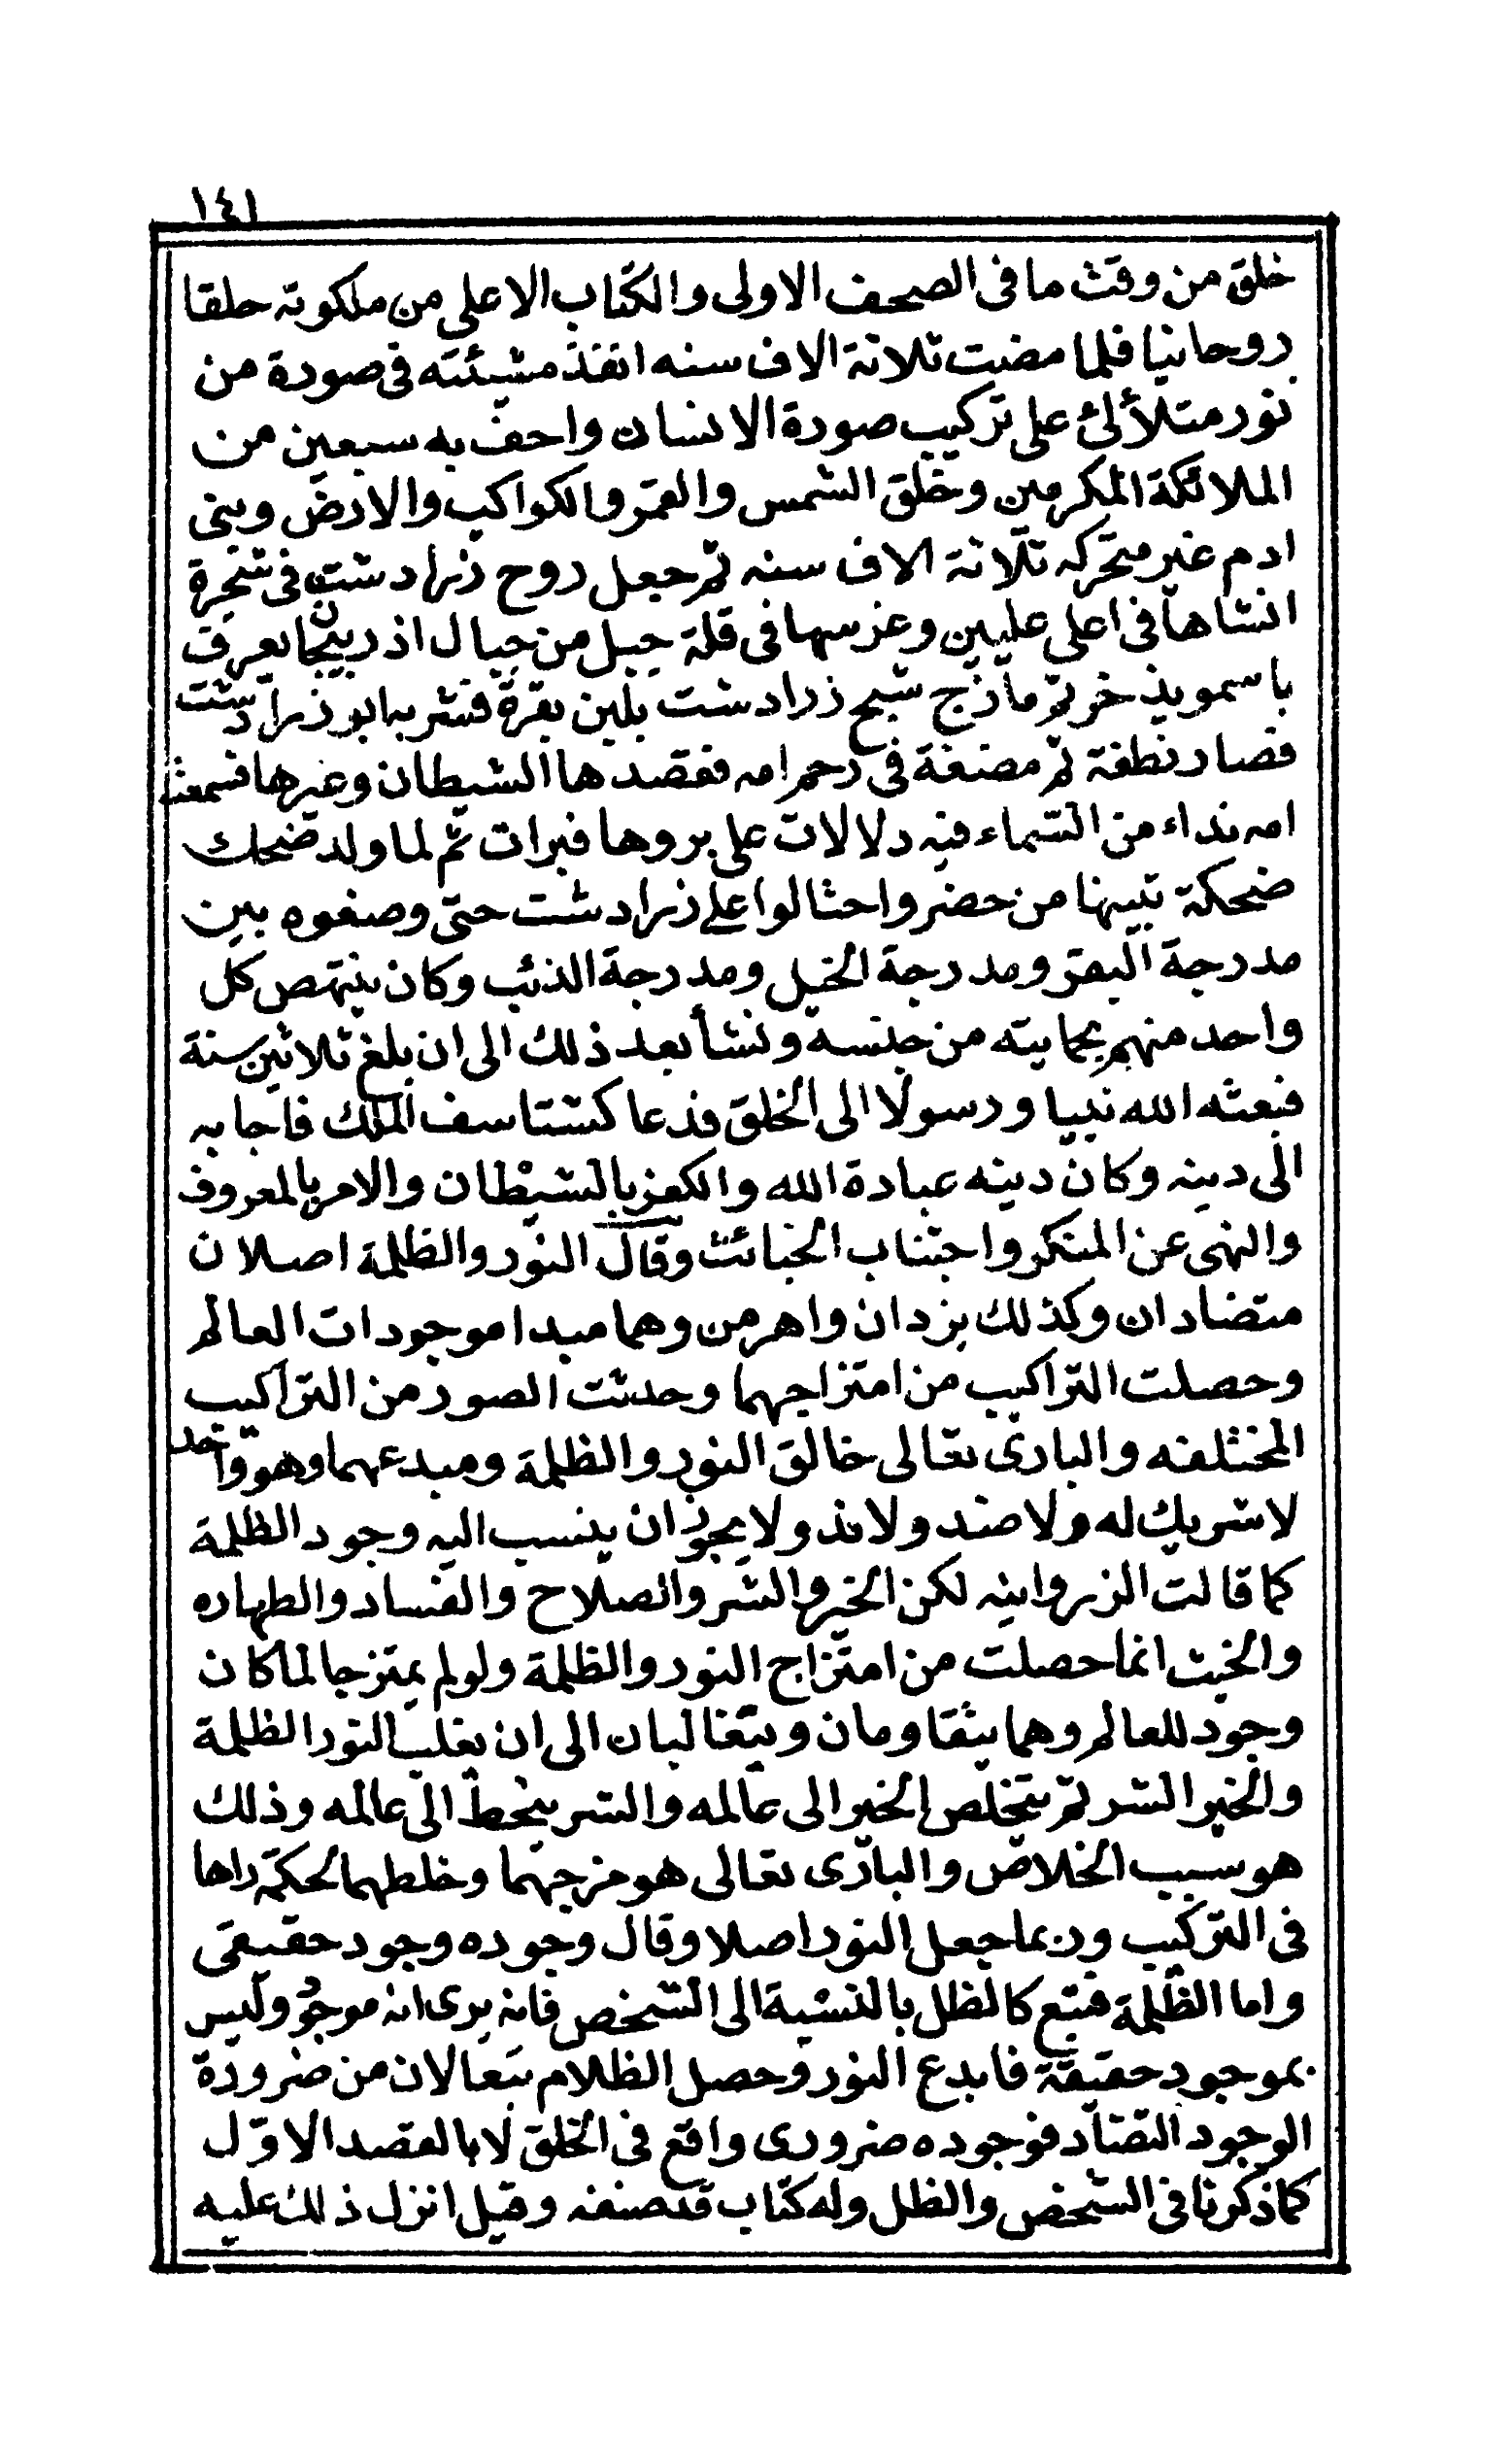 ١٤١
خلق من وقت ما فى الصحف الاولى والكتاب الاعلى من ملكوته حلقا
روحانيا فلما مضت ثلاثة الاف سنه انفذ مشيئته فى صورة من
نور متلألئ على تركيب صورة الانسان واحف به سبعين من
الملائكة المكرمين وخلق الشمس والقمر والكواكب والارض وبنى
ادم غير متحركه ثلاثة الاف سنه ثم جعل روح زرادشت فى شجرة
انشاها فى اعلى عليين وغرسها فى قلة جبل من جبال اذربيجان يعرف
باسمويذ خر ثم مازج شبح زرادشت بلبن بقرة فشربه ابو زرادشت
فصار نطفة ثم مضغة فى رحم امه فقصدها الشيطان وغيرها فسمعت
امه نداء من السماء فيه دلالات على بروها فبرات ثم لما ولد ضحك
ضحكة تبينها من حضر واحتالوا على زرادشت حتى وضعوه بين
مدرجة البقر ومدرجة الخيل ومدرجة الذئب وكان ينتهض كل
واحد منهم بحمايته من جنسه ونشأ بعد ذلك الى ان بلغ ثلاثين سنة
فبعثه الله نبيا ورسولا الى الخلق فدعا كشتاسف الملك فاجابه
الى دينه وكان دينه عبادة الله والكفر بالشيطان والامر بالمعروف
والنهى عن المنكر واجتناب الخبائث وقال النور والظلمة اصلان
متضادان وكذلك يزدان واهرمن وهما مبدا موجودات العالم
وحصلت التراكيب من امتزاجهما وحدثت الصور من التراكيب
المختلفه والبارى تعالى خالق النور والظلمة ومبدعهما وهو واحد
لا شريك له ولا ضد ولا ند ولا يجوز ان ينسب اليه وجود الظلمة
كما قالت الزروانيه لكن الخير والشر والصلاح والفساد والطهاره
والخبث انما حصلت من امتزاج النور والظلمة ولو لم يمتزجا لما كان
وجود للعالم وهما يتقاومان ويتغالبان الى ان يغلب النور الظلمة
والخير الشر ثم يتخلص الخير الى عالمه والشر ينحط الى عالمه وذلك
هو سبب الخلاص والبارى تعالى هو مزجهما وخلطهما لحكمة راها
فى التركيب وربما جعل النور اصلا وقال وجوده وجود حقيقى
واما الظلمة فتبع كالظل بالنسبة الى الشخص فانه يرى انه موجود وليس
بموجود حقيقة فابدع النور وحصل الظلام تبعا لان من ضرورة
الوجود التضاد فوجوده ضرورى واقع فى الخلق لا بالقصد الاول
كما ذكرنا فى الشخص والظل وله كتاب قد صنفه وقيل انزل ذلك عليه